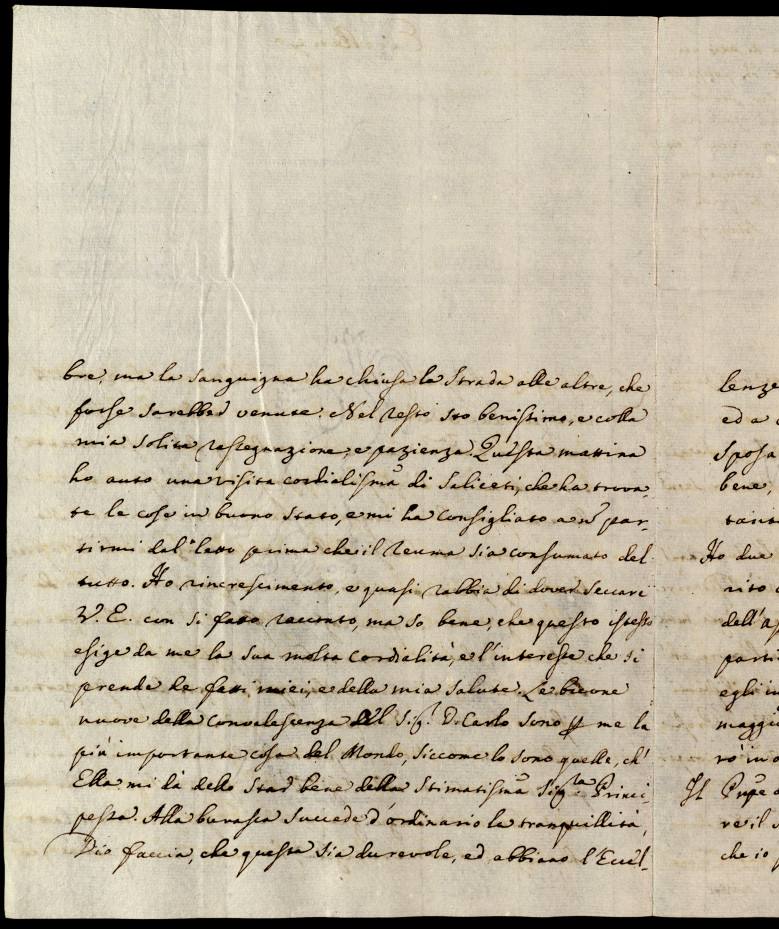 bre, ma la sanguigna ha chiusa la strada alle altre, che
forse sarebber venute. Nel resto sto benissimo, e colla
mia solita rassegnazione, e pazienza. Questa mattina
ho auto una visita cordialissma di Saliceti, che ha trova-
te le cose in buono stato, e mi ha consigliato a nō par-
tirmi dal letto prima che il reuma sia consumato del
tutto. Ho rincrescimento, e quasi rabbia di dover seccare
V. E. con sì fatto racconto, ma so bene, che questo istesso
esige da me la sua molta cordialità, e l'interesse che si
prende de fatti miei, e della mia salute. Le buone
nuove della convalescenza dell Sig.r D. Carlo sono p me la
più importante cosa del Mondo, siccome lo sono quelle, ch'
Ella mi dà dello star bene della stimatissma Sig.ra Princi-
pessa. Alla burasca succede d'ordinario la tranquillità,
Dio faccia, che questa sia durevole, ed abbiano l'Eccel-
lenze
ed a
sposa
bene,
tant
Ho due
rito
dell'
parti
egli in
maggio
rò in
Il Pnpe
re il
che io